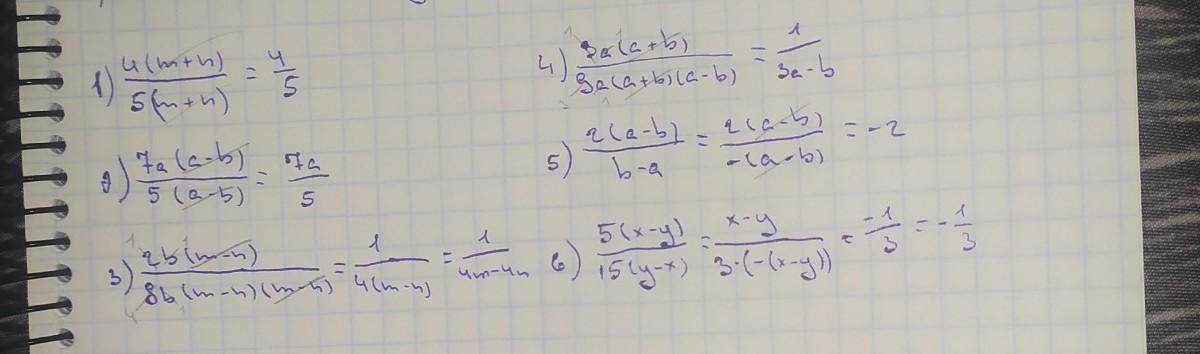 1) 4(m+n)/5(m+n) = 4/5
2) 7a(a-b)/5(a-b) = 7a/5
3) 2b(m-n)/8b(m-n)(m-n) = 1/4(m-n) = 1/4m-4n
4) 3a(a+b)/9a(a+b)(a-b) = 1/3a-b
5) 2(a-b)/b-a = 2(a-b)/-(a-b) = -2
6) 5(x-y)/15(y-x) = x-y/3·(-(x-y)) = -1/3 = -1/3